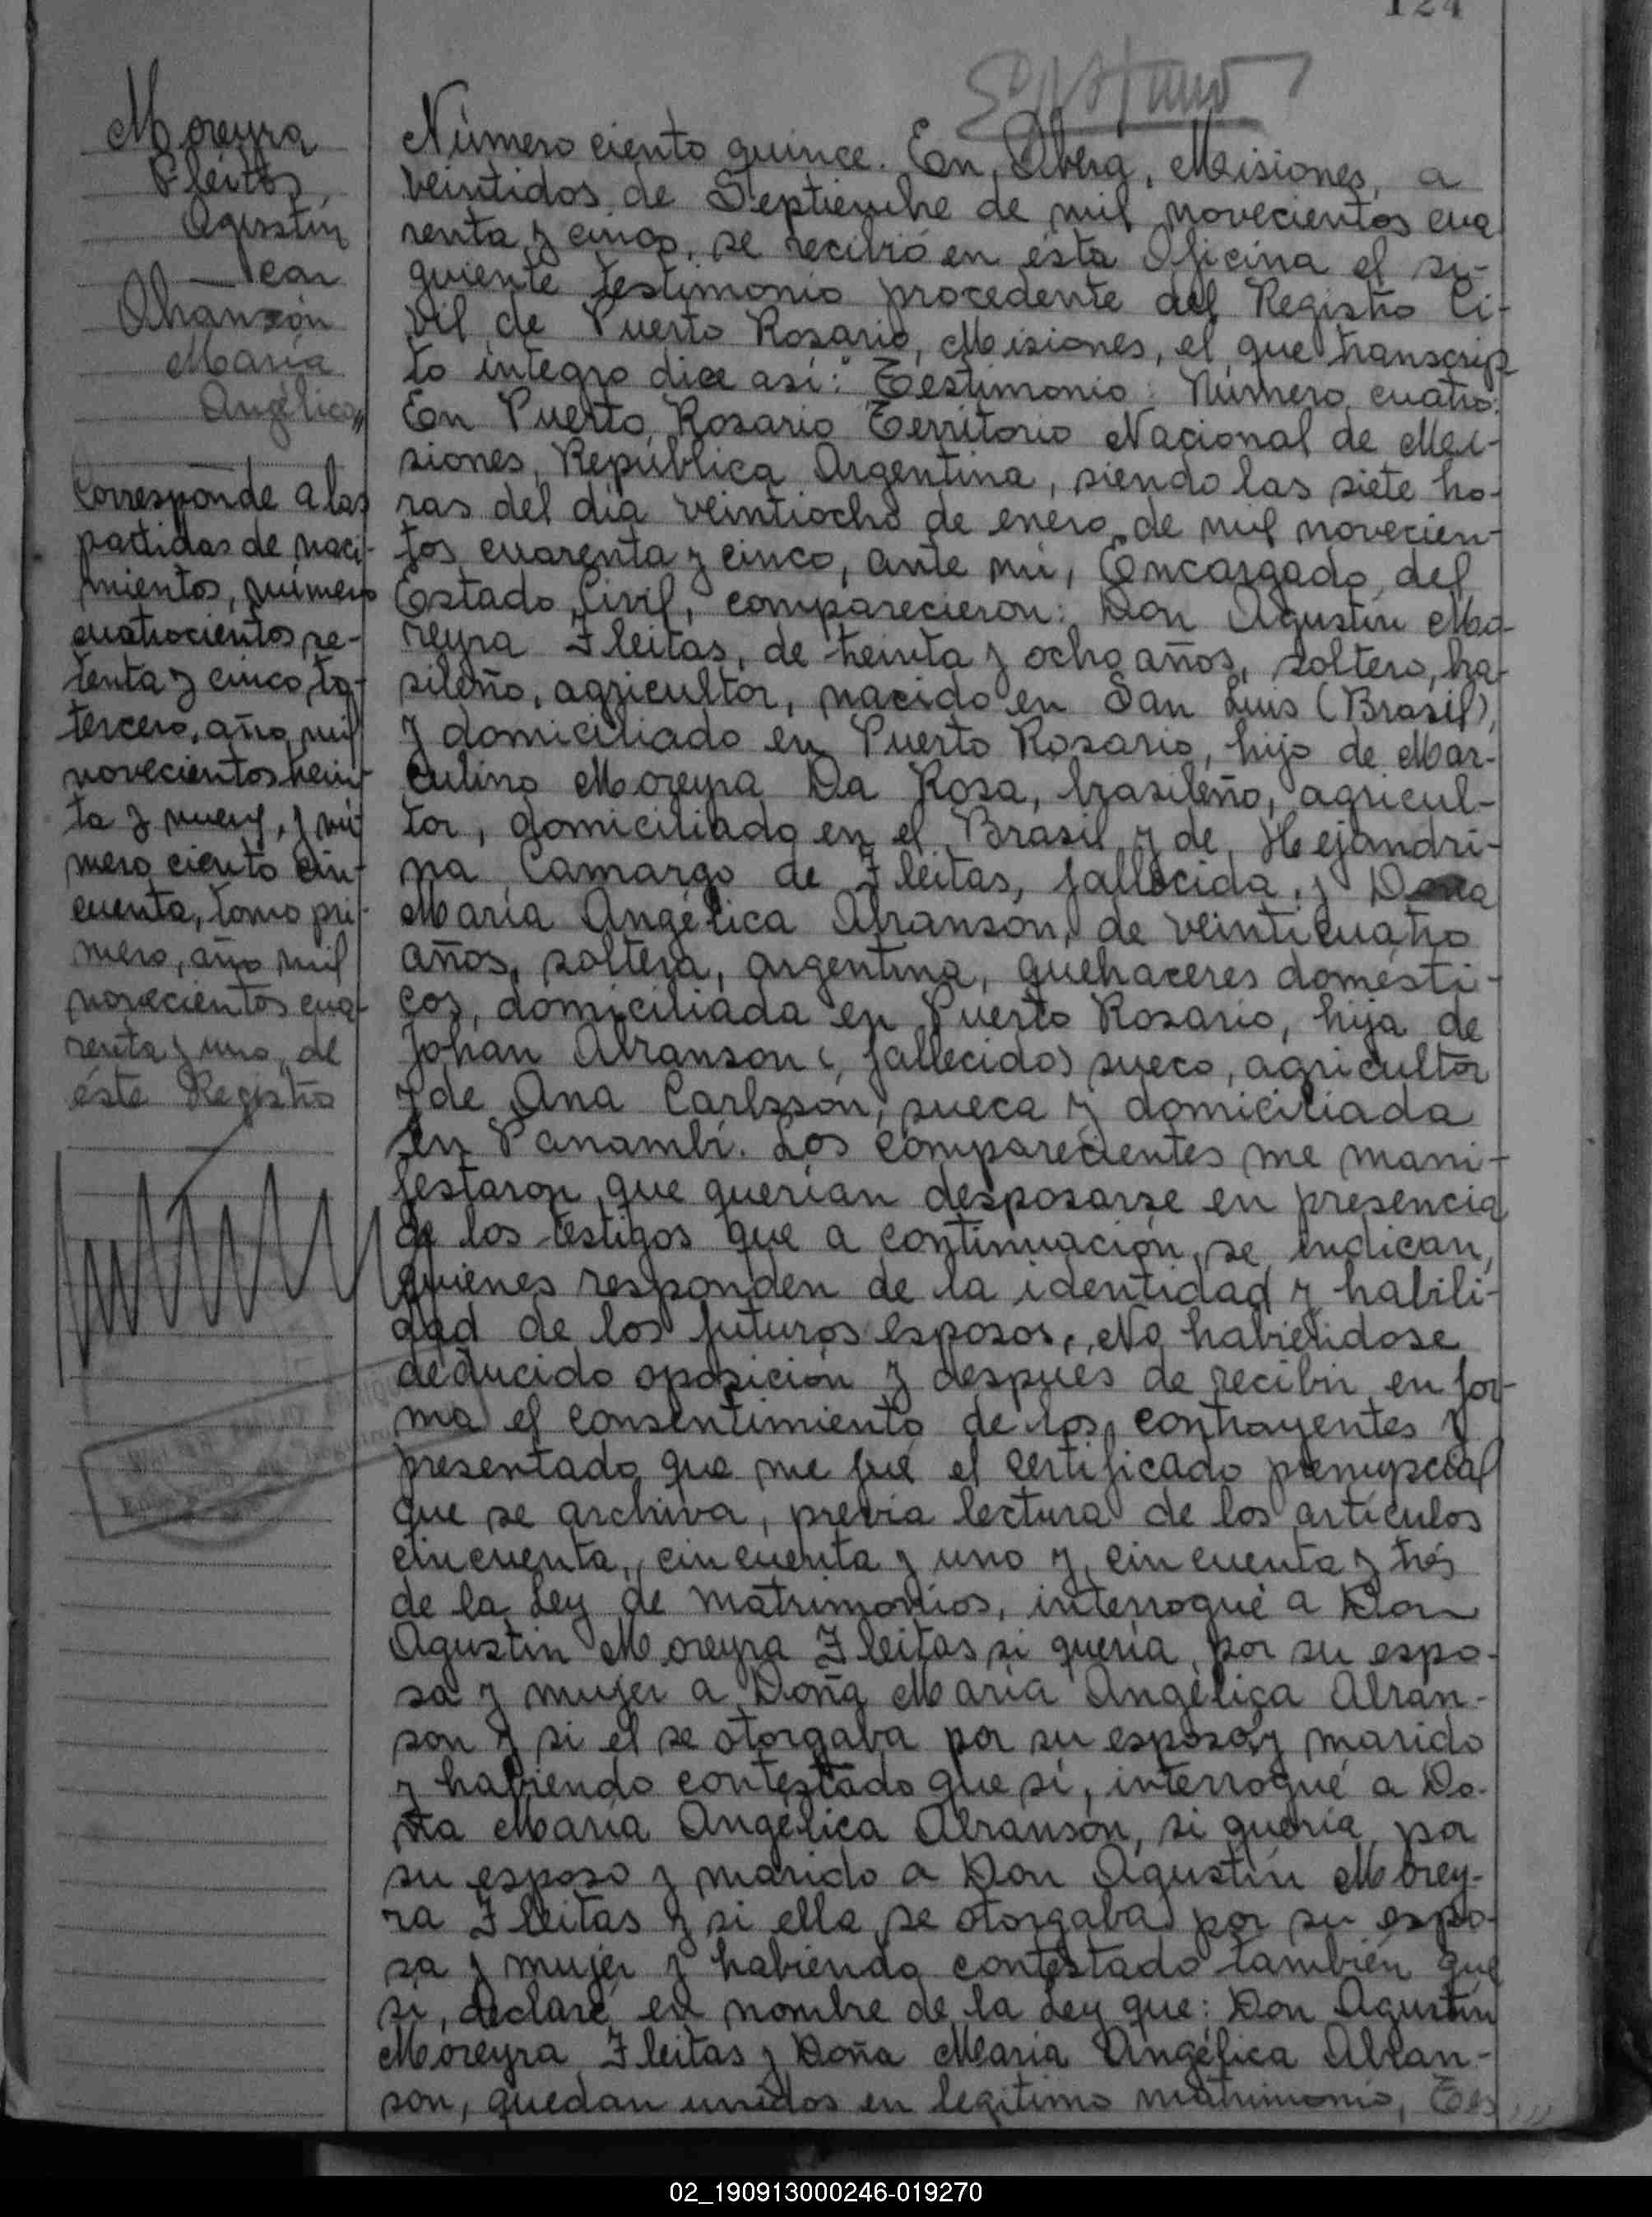 124
Moreyra
Fleitas
Agustín
con
Abranson
María
Angélica
Corresponde a las
partidas de naci-
mientos, número
cuatrocientos se-
tenta y cinco, to-
tercero, año mil
novecientos trein-
ta y nueve, y nú-
mero ciento cin-
cuenta, tomo pri-
mero, año mil
novecientos cua-
renta y uno, de
éste Registro
Número ciento quince. En Oberá, Misiones, a
veintidos de Septiembre de mil novecientos cua
renta y cinco, se recibió en ésta Oficina el si-
guiente testimonio procedente del Registro Ci-
vil de Puerto Rosario, Misiones, el que transcrip
to integro dice así: "Testimonio: Número cuatro:
En Puerto Rosario Territorio Nacional de Mi-
siones, República Argentina, siendo las siete ho-
ras del día veintiocho de enero de mil novecien-
tos cuarenta y cinco, ante mí, Encargado del
Estado Civil, comparecieron: Don Agustín Mo-
reyra Fleitas, de treinta y ocho años, soltero, bra-
sileño, agricultor, nacido en San Luis (Brasil),
y domiciliado en Puerto Rosario, hijo de Mar-
culino Moreyra Da Rosa, brasileño, agricul-
tor, domiciliado en el Brasil y de Alejandri-
na Camargo de Fleitas, fallecida, y Doña
María Angélica Abranson, de veinticuatro
años, soltera, argentina, quehaceres domésti-
cos, domiciliada en Puerto Rosario, hija de
Johan Abranson (fallecido) sueco, agricultor
y de Ana Carlsson, sueca y domiciliada
en Panambí. Los comparecientes me mani-
festaron que querían desposarse en presencia
de los testigos que a continuación se indican,
quienes responden de la identidad y habili-
dad de los futuros esposos. No habiéndose
deducido oposición y después de recibir en for-
ma el consentimiento de los contrayentes y
presentado que me fué el certificado prenupcial
que se archiva, previa lectura de los artículos
cincuenta, cincuenta y uno y cincuenta y trés
de la Ley de matrimonios, interrogué a Don
Agustin Moreyra Fleitas si quería por su espo-
sa y mujer a Doña María Angélica Abran-
son y si el se otorgaba por su esposo y marido
y habiendo contestado que sí, interrogué a Do-
ña María Angélica Abranson, si quería por
su esposo y marido a Don Agustín Morey-
ra Fleitas y si ella se otorgaba por su espo-
sa y mujer y habiendo contestado también que
sí, declaré en nombre de la Ley que: Don Agustín
Moreyra Fleitas y Doña María Angélica Abran-
son, quedan unidos en legítimo matrimonio, Tes
02_190913000246-019270